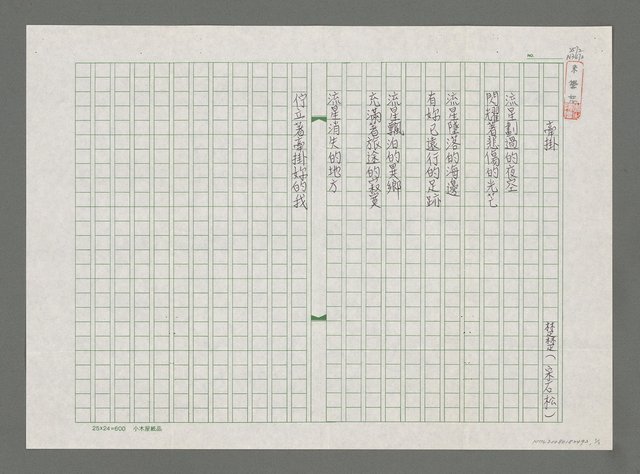 牽掛
楚楚（宋石松）
流星劃過的夜空
閃耀著悲傷的光芒
流星墜落的海邊
有妳已遠行的足跡
流星飄泊的異鄉
充滿著旅途的寂寞
流星消失的地方
佇立著牽掛妳的我
NO.
25×24=600 小木屋紙品